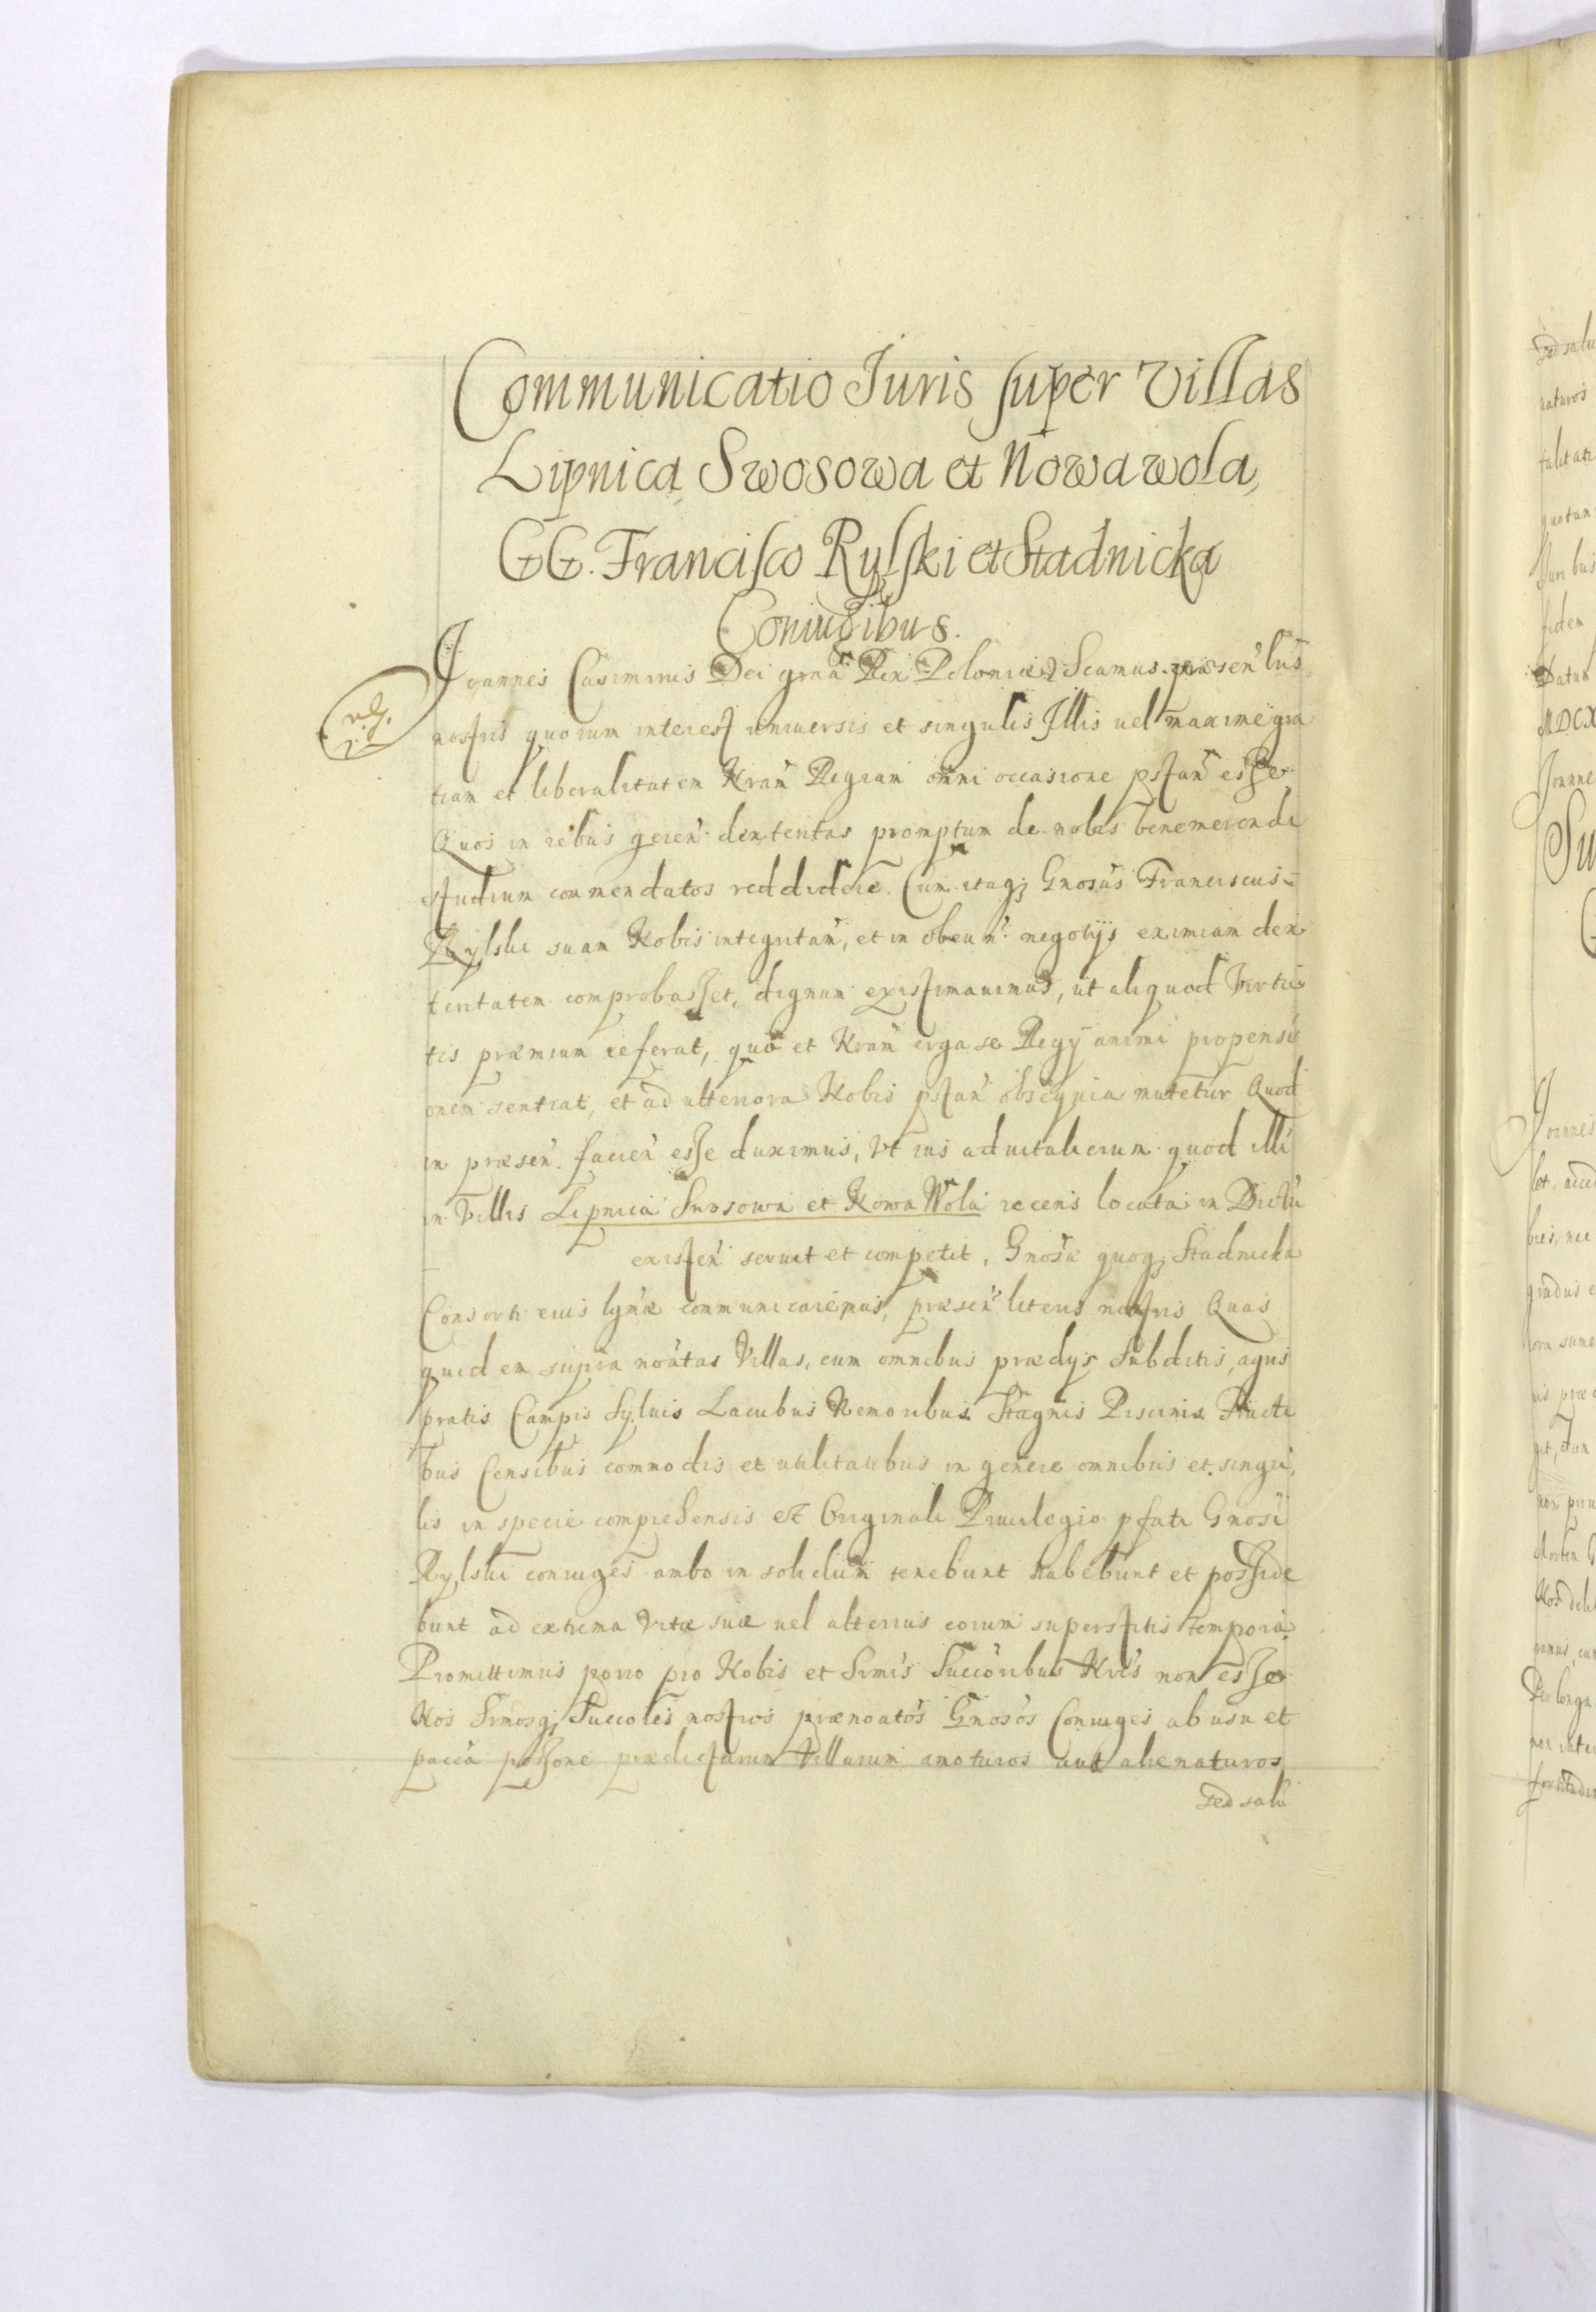 Communicatio Iuris super Villas
Lipnica Swosowa et Nowawola,
GG. Francisco Rylski et Stadnicka
Coniugibus.
Joannes Casimirus Dei grãa Rex Poloniæ Scamus præsen' lris
nostris quorum interest uniuersis et singulis Illis uel maxime gra
tiam et liberalitatem Nram Regiam omni occasione pstan' esse
Quos in rebus geren' dexteritas promptum de nobis benemerendi
studium commendatos reddidere. Cum itaq; Gnosus Franciscus
Rylski suam Nobis integritam, et in obeun' negotijs eximiam dex
teritatem comprobasset, dignum existimauimus, ut aliquod Virtu
tis præmium referat, quo et Nram erga se Regij animi propensi
onem sentiat, et ad ulteriora Nobis pstan' obsequia inuitetur Quod
in præsen'. facien' esse duximus, Vt ius aduitalicium quod illi
in Villis Lipnica Swosowa et Nowa Wola recens locata in Districtu
existen' seruit et competit, Gnosæ quoq; Stadnicka
Consorti eius lgmæ communicaremus, præsen' literis nostris Quas
quidem supra noatas Villas, cum omnibus prædijs Subditis, agris
pratis Campis Syluis Lacubus Nemoribus Stagnis Piscinis Fructi
bus Censibus commodis et utilitatibus in genere omnibus et singu
lis in specie comprehensis et Originali Priuilegio pfati Gnosi
Rylski coniuges ambo in solidum tenebunt habebunt et posside
bunt ad extrema Vitæ suæ uel alterius eorum superstitis tempora
Promittimus porro pro Nobis et Srmis Succoribus Nris non esse
Nos Srmosq; Succores nostros prænoatos Gnosos Coniuges ab usu et
pacca possone prædictarum Villarum amoturos aut alienaturos,
sed salu